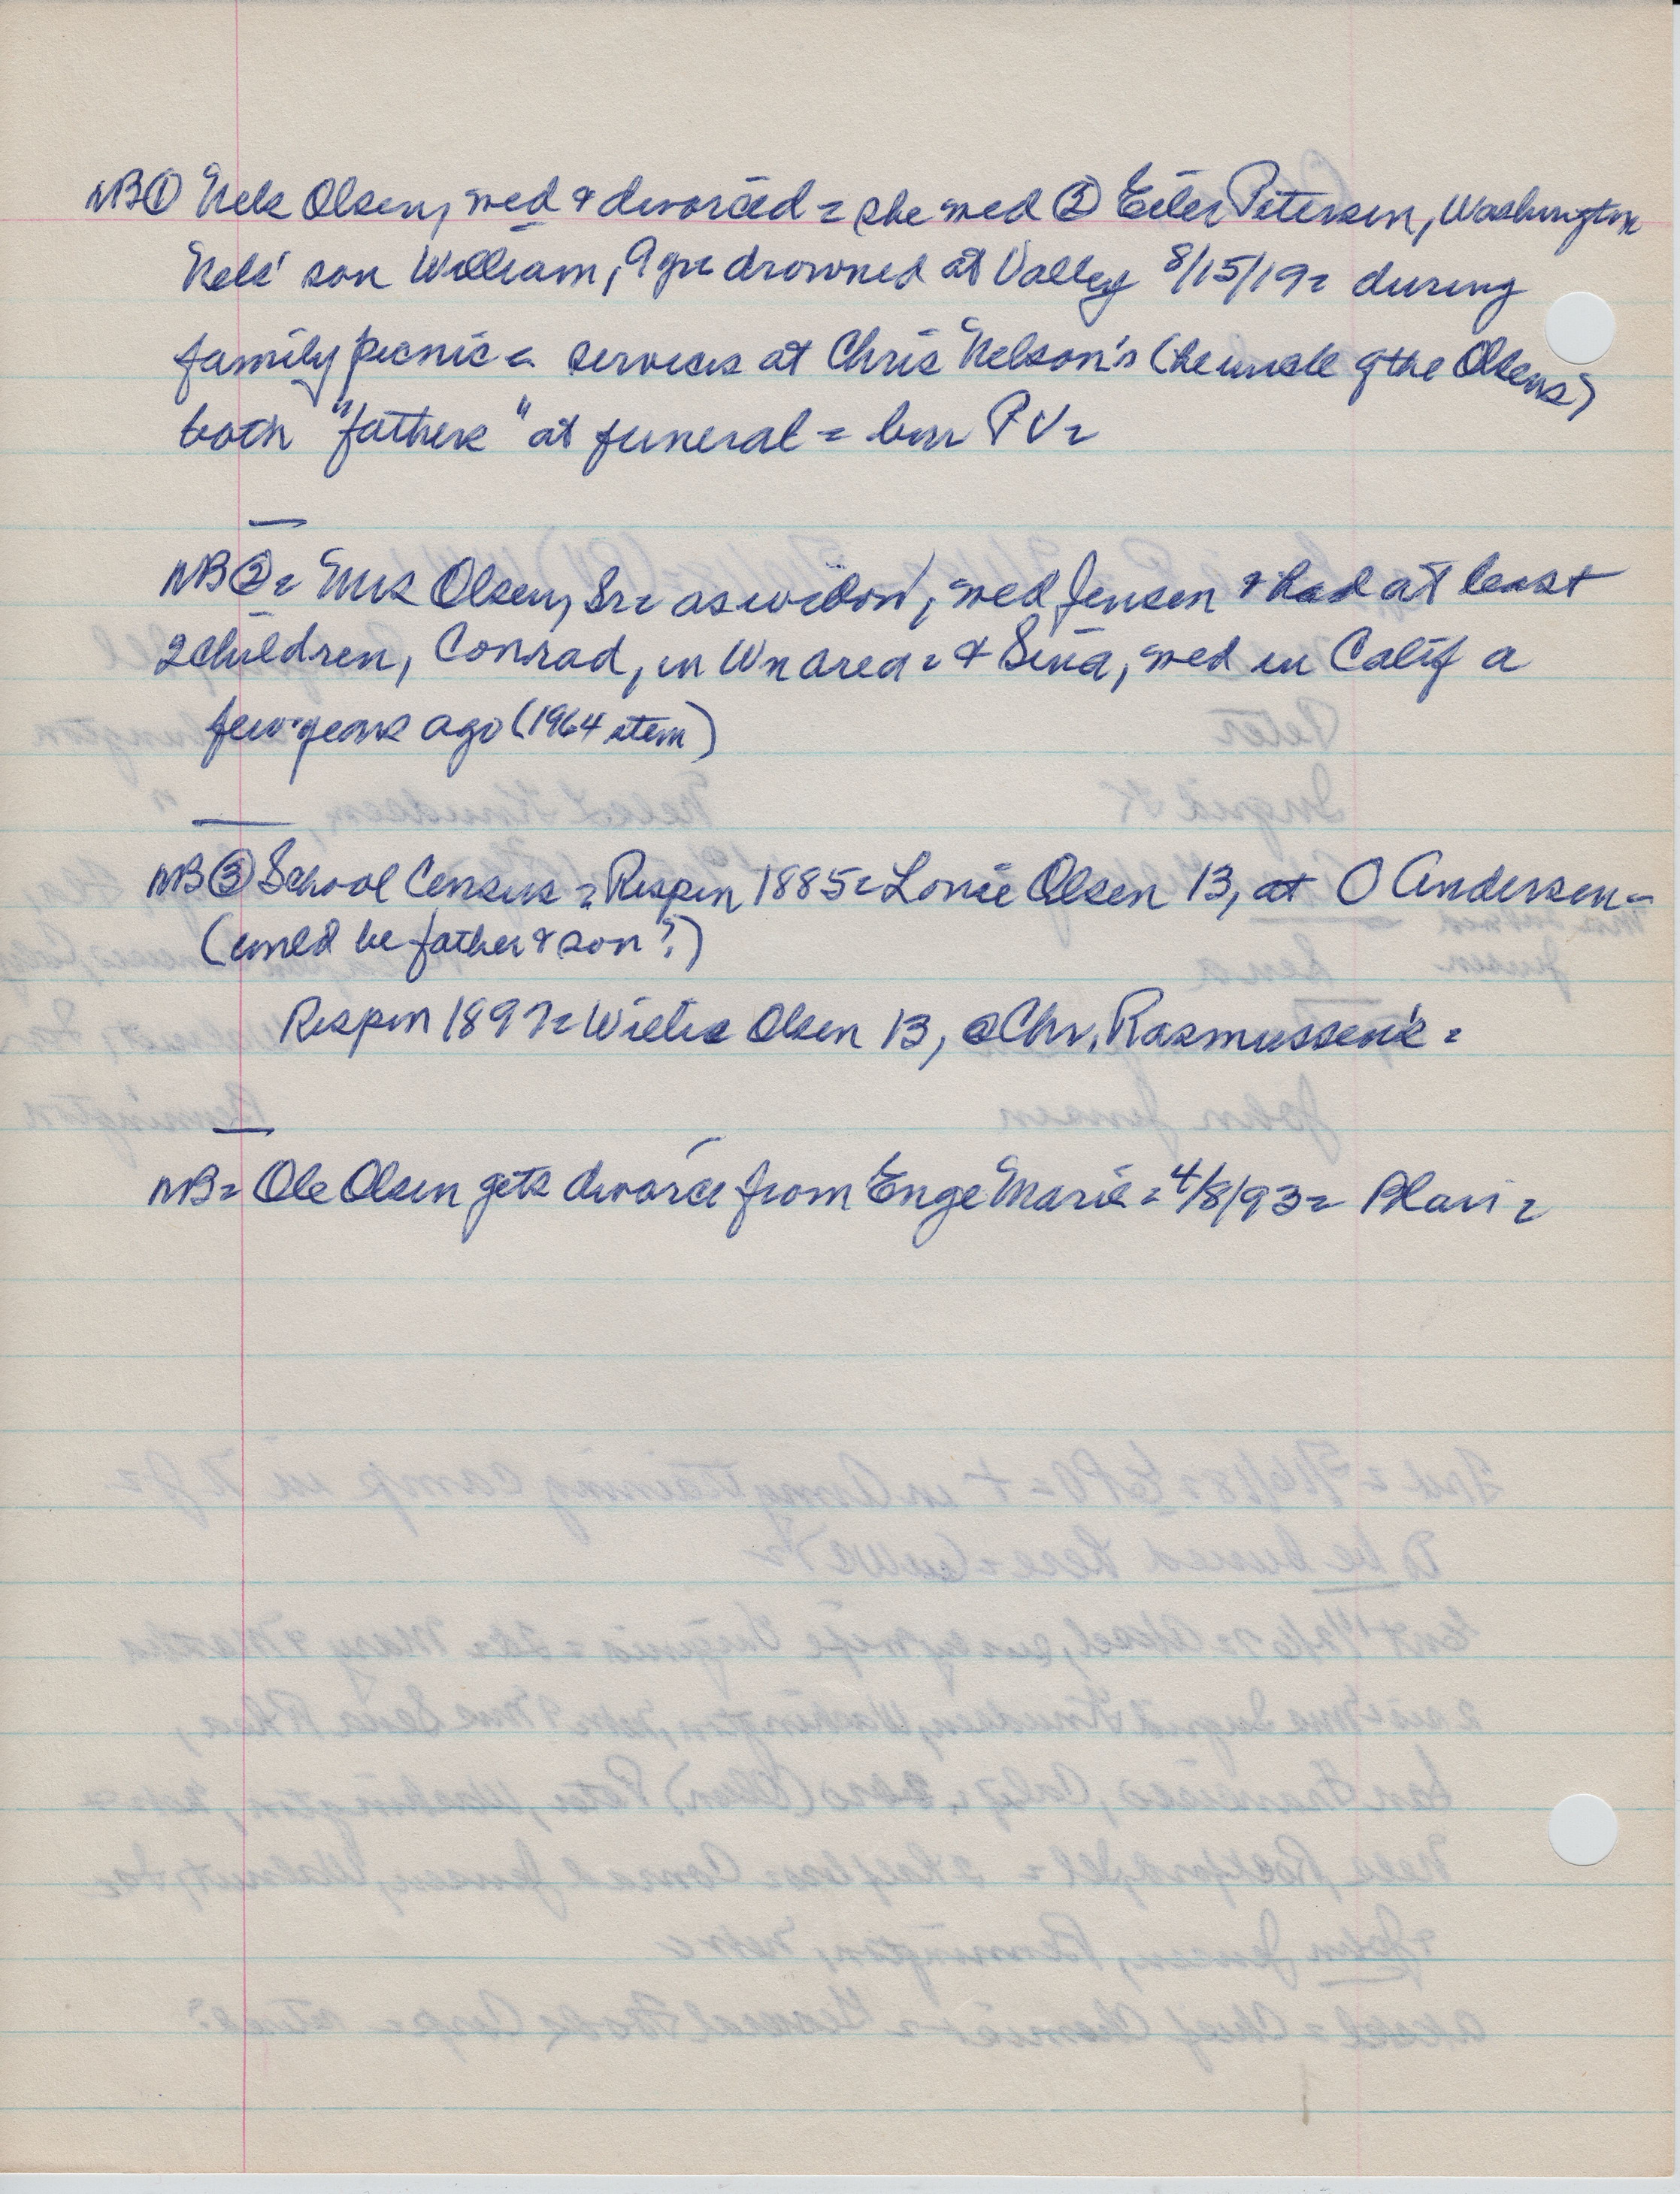 NB① Nels Olsen, med & divorced = she med ② Eiler Petersen, Washington
Nels' son William, 9 yr= drowned at Valley 8/15/19= during
family picnic = services at Chris Nelson's (he uncle of the Olsens)
both "fathers" at funeral = bur PV=
NB②= Mrs Olsen, Sr= as widow, med Jensen & had at least
2 children, Conrad, in Wn area = & Sina, med in Calif a
few years ago (1964 item)
NB③ School Census = Rispin 1885= Louie Olsen 13, at O Andersen =
(could be father & son?)
Rispin 1897= Willie Olsen 13, @ Chr. Rasmussen's =
NB= Ole Olsen gets divorce from Enge Marie = 4/8/93=